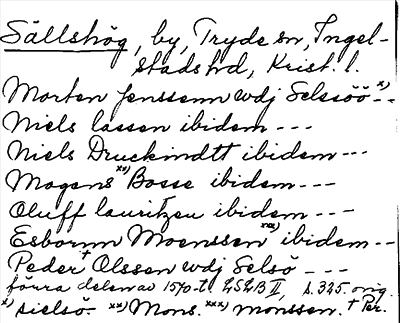 Sällshög, by, Tryde sn, Ingel-
stads hd, Krist. l.
Morten Jenssenn wdj Selsöö x) --
Niels lassen ibidem ---
Niels Druckindtt ibidem ---
Mogens xx) Bosse ibidem ---
Oluff lauritzen ibidem ---
Esbornn Moenssen xxx) ibidem --
Peder + Olssen wdj Selsö ---
förra delen av 1570-t. LSLB II, s. 325. orig.
x) sielsö. xx) Mons. xxx) monssen. + Per.